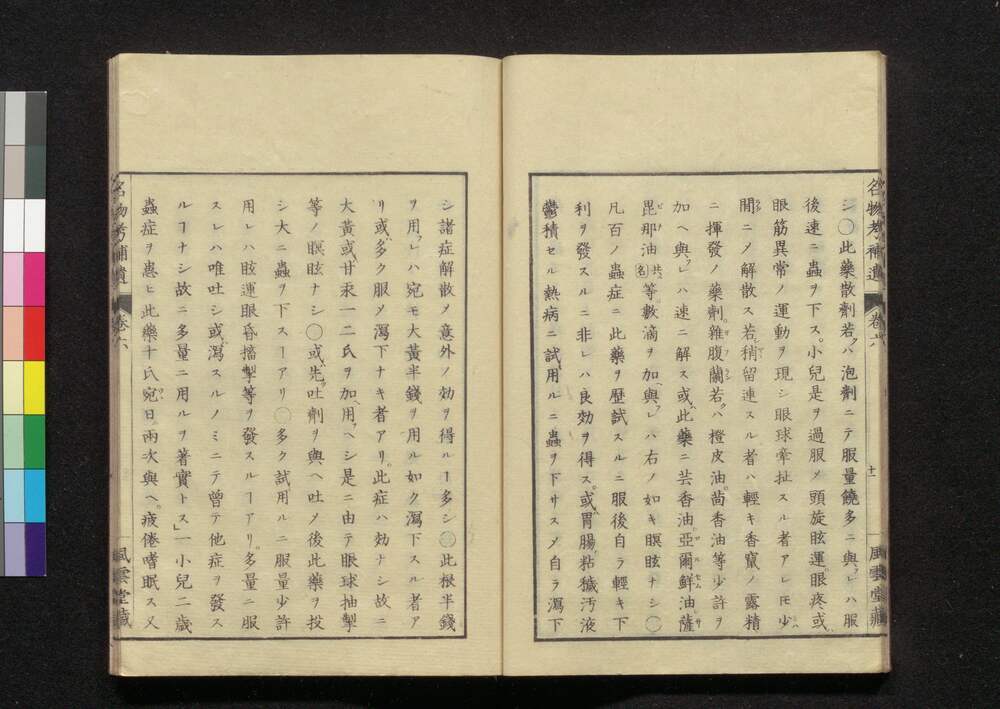 名物考補遺 卷六 十一 風雲堂藏
シ○此藥散劑若クハ泡劑ニテ服量饒多ニ與フレハ服
後速ニ蟲ヲ下ス。小兒是ヲ過服メ頭旋眩運。眼疼或ハ
眼筋異常ノ運動ヲ現シ眼球牽扯スル者アレ𪜈少
間ニメ解散ス若稍留連スル者ハ輕キ香竄ノ露精
ニ揮發ノ藥劑。雜腹蘭若クハ橙皮油。茴香油等少許ヲ
加ヘ與フレハ速ニ解ス或ハ此藥ニ芸香油。亞爾鮮油薩
毘那油共ニ名等數滴ヲ加ヘ與フレハ右ノ如キ瞑眩ナシ○
凡百ノ蟲症ニ此藥ヲ歴試スルニ服後自ラ輕キ下
利ヲ發スルニ非レハ良効ヲ得ス。或ハ胃腸粘穢汚液
鬱積セル熱病ニ試用ルニ蟲ヲ下サスメ自ラ瀉下
シ諸症解散メ意外ノ効ヲ得ルヿ多シ○此根半錢
ヲ用フレハ宛モ大黃半錢ヲ用ル如ク瀉下スル者ア
リ或ハ多ク服メ瀉下ナキ者アリ。此症ハ効ナシ故ニ
大黃或ハ甘汞一二氏ヲ加ヘ用フヘシ是ニ由テ眼球抽掣
等ノ瞑眩ナシ○或ハ先ツ吐劑ヲ與ヘ吐メ後此藥ヲ投
シ大ニ蟲ヲ下スヿアリ○多ク試用ルニ服量少許
用レハ眩運眼昏搐掣等ヲ發スルヿアリ。多量ニ服
スレハ唯吐シ或ハ瀉スルノミニテ曾テ他症ヲ發ス
ルヿナシ故ニ多量ニ用ルヲ著實トス」一小兒二歳
蟲症ヲ患ヒ此藥十氏宛日ニ兩次與ヘ。疲倦嗜眠ス又
名物考補遺 卷六 風雲堂藏